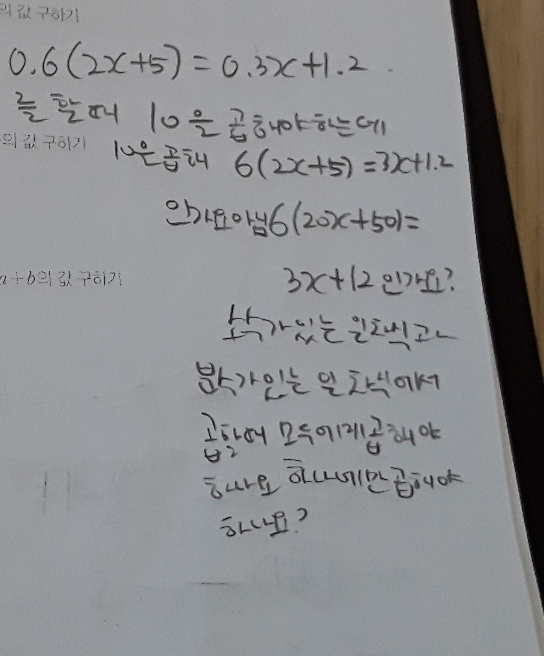 의 값 구하기
0.6(2x+5)=0.3x+1.2
를 할때 10을 곱해야하는데
의 값 구하기
10은곱해 6(2x+5)=3x+1.2
인가요아님6(20x+50)=
a+b의 값 구하기
3x+12인가요?
소수가있는 일차식고ㅏ
분수가있는 일차식에서
곱할때 모두에게곱해야
하나요 하나에만곱해야
하나요?